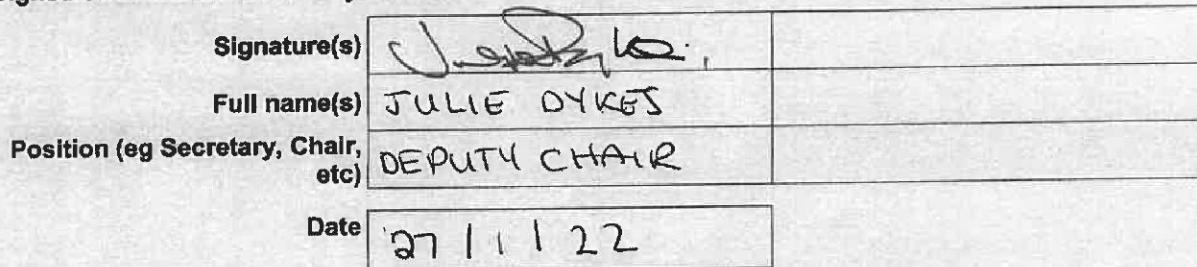 Signature(s)
Full name(s) JULIE DYKES
Position (eg Secretary, Chair, etc) DEPUTY CHAIR
Date 27 / 1 / 22